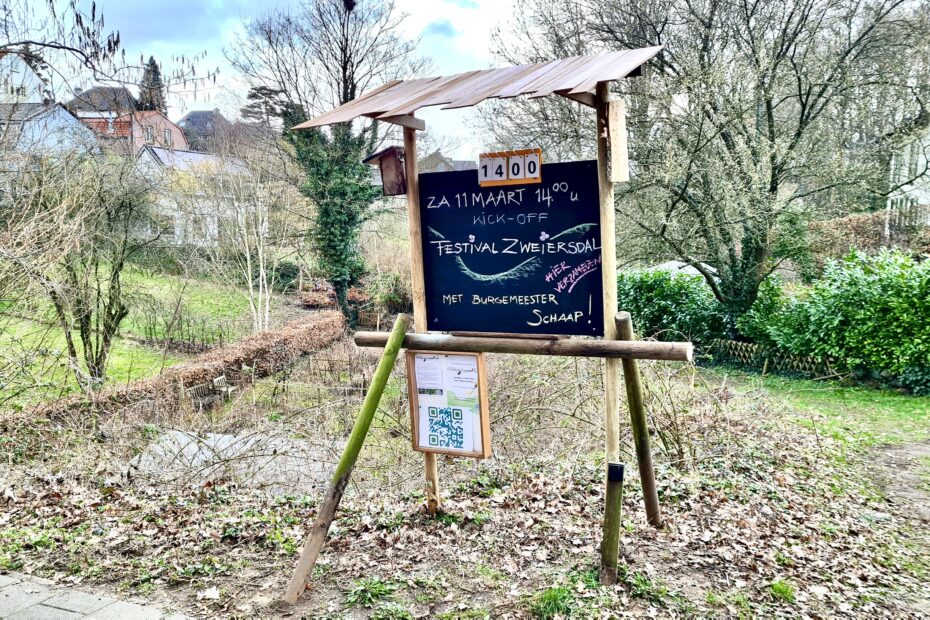 1400
ZA 11 MAART 14.00 u
KICK-OFF
FESTIVAL ZWEIERSDAL
HIER
VERZAMELEN
MET BURGEMEESTER
SCHAAP!